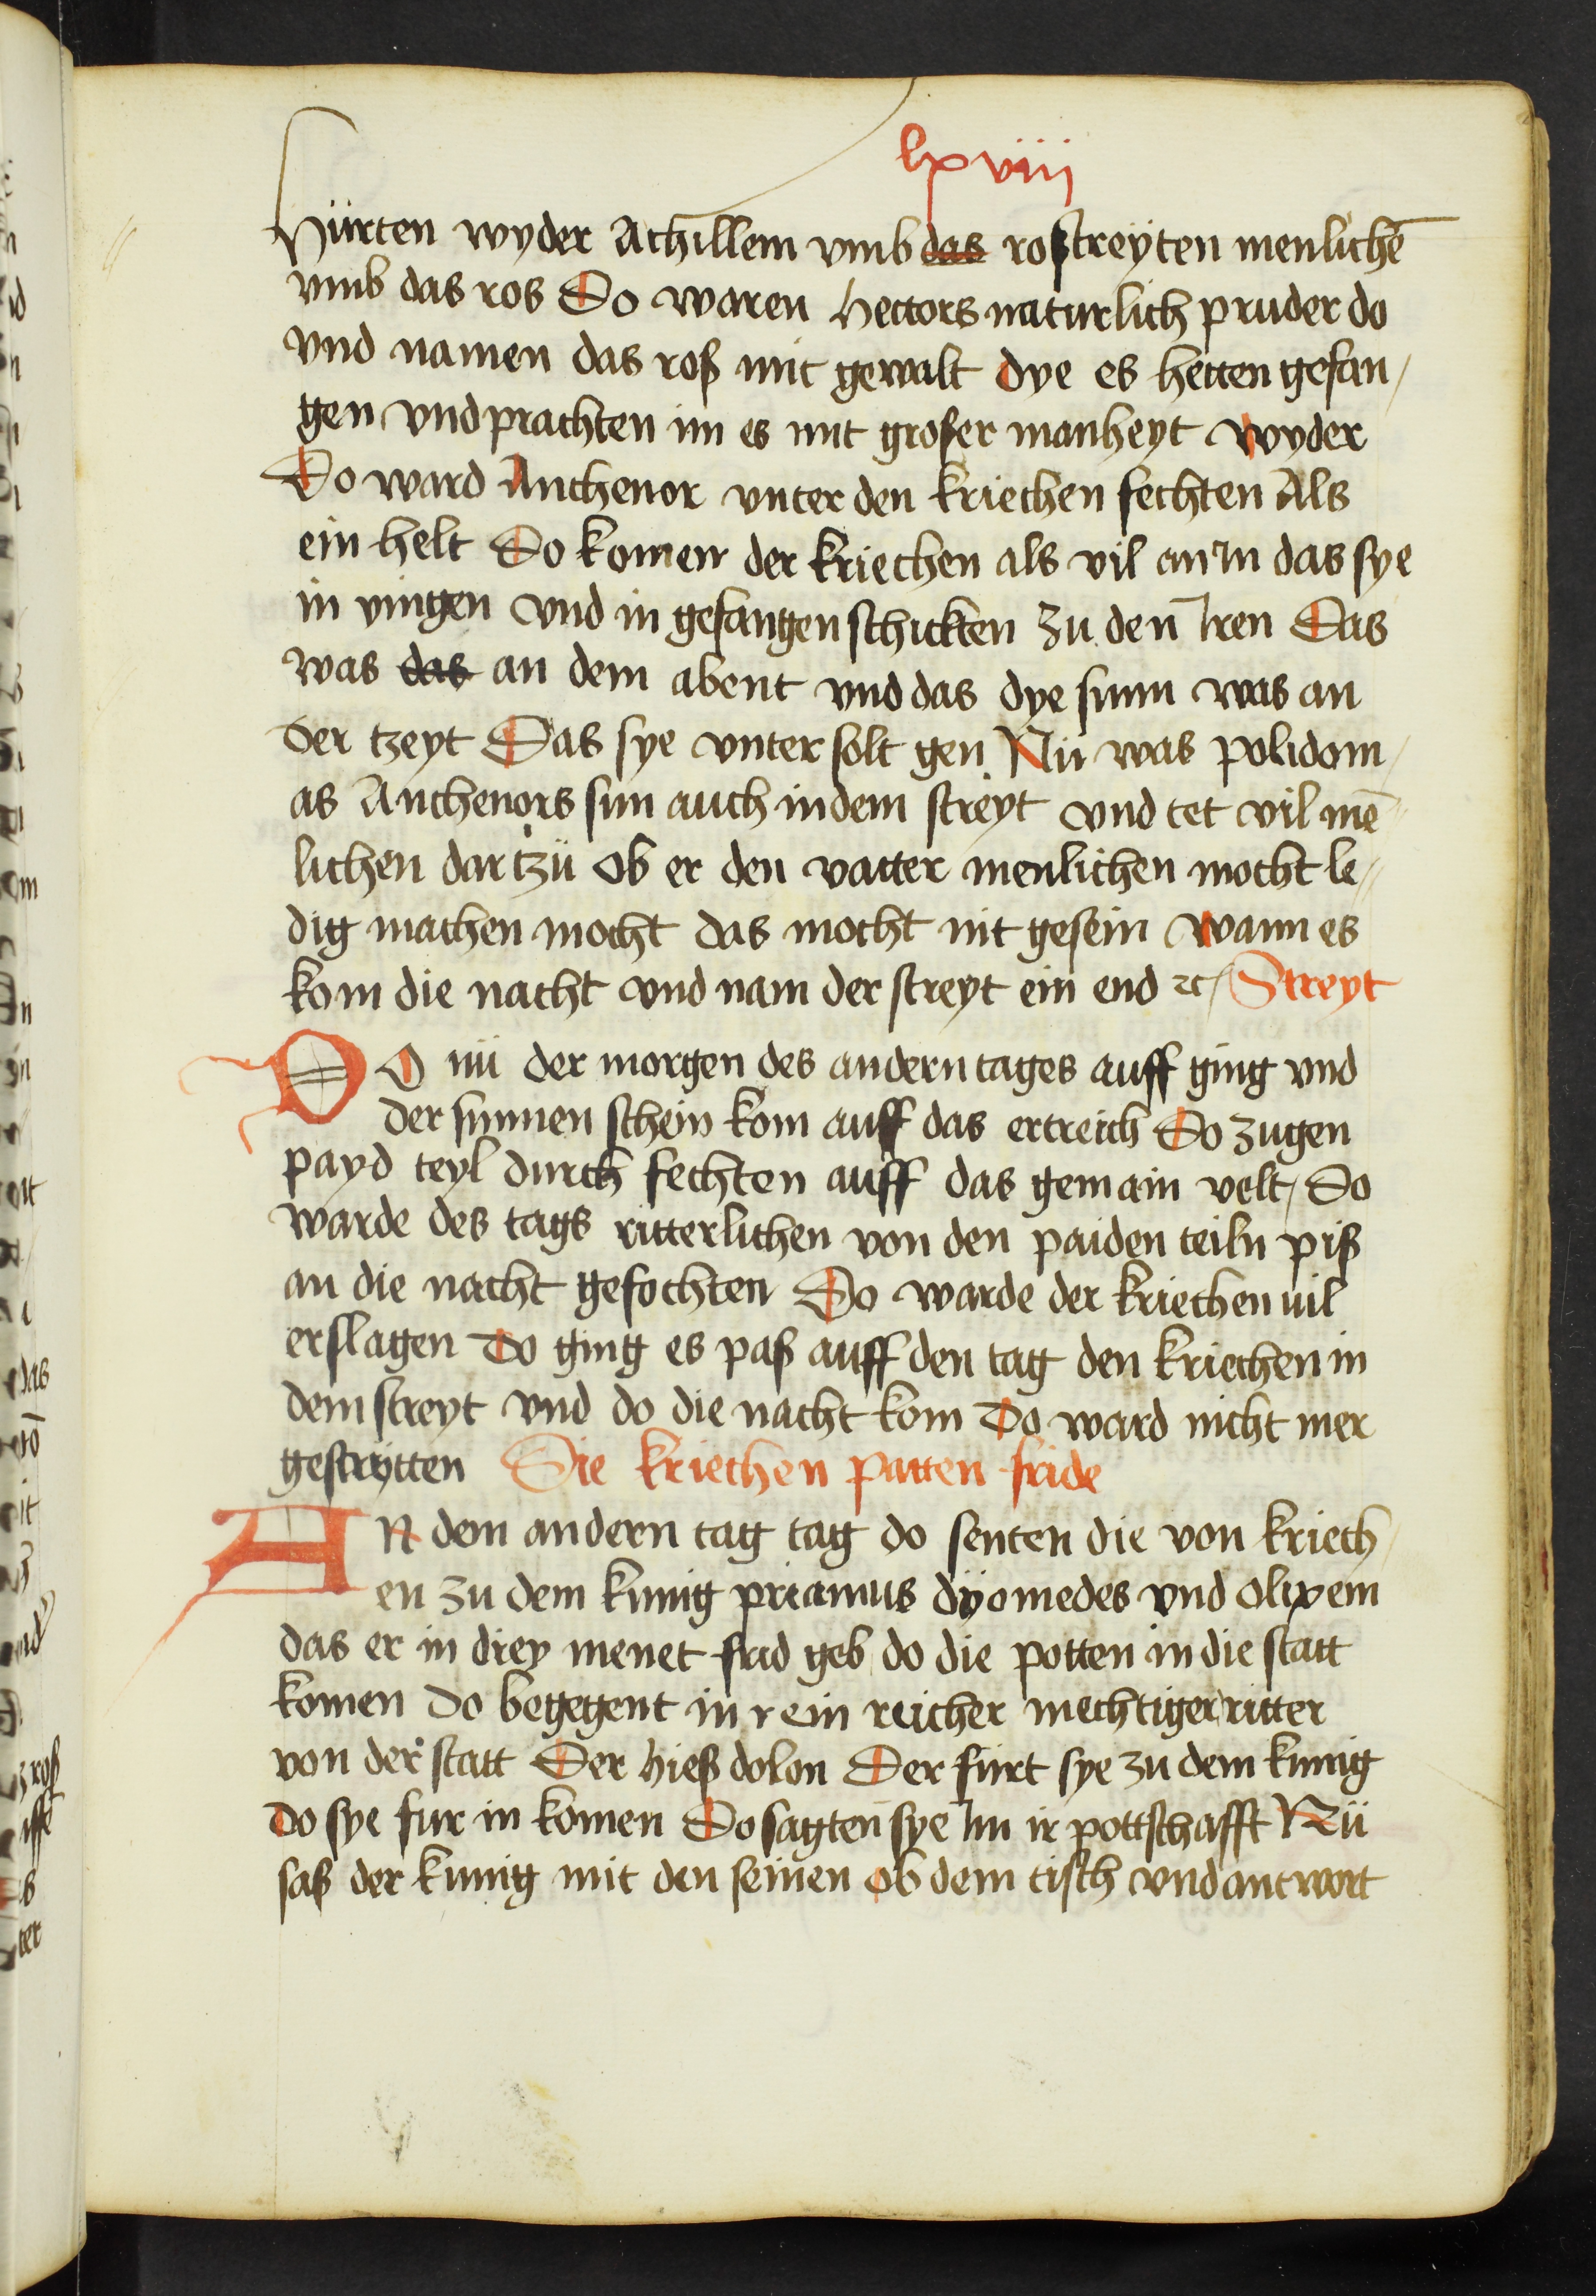 lxviii
Hürten wyder Achillem vmb das roß streÿten menlichē
vmb das ros Do waren hectors naturlich pruder do
vnd namen das roß mit gewalt dye es hetten gefan
gen vnd prachten im es mit großer manheyt wyder
Do ward Anthenor vnter den kriechen fechten Als
ein helt Do komen der kriechen als vil an In das sye
in vingen vnd in gefangen schickten zu den Iren Das
was das an dem abent vnd das dye sunn was an
der tzeyt Das sye vnter solt gen Nü was polidom
as Anthenors sun auch in dem streyt vnd tet vil mē
lichen dar tzü Ob er den vatter menlichen mocht le
dig machen mocht das mocht nit gesein wann es
kom die nacht vnd nam der streyt ein end ⁊c Streyt
DO nü der morgen des andern tages auff ging vnd
der sunnen schein kom auff das ertreich Do zugen
payd teyl durch fechten auff das gemain velt / Do
warde des tags ritterlichen von den paiden teiln piß
an die nacht gefochten Do warde der kriechen vil
erslagen do ging es paß auff den tag den kriechen in
dem streyt vnd do die nacht kom Do ward nicht mer
gestrytten Die kriechen patten fride
AN dem andern tag tag do senten die von kriech
en zu dem kunig priamus dÿomedes vnd olixem
das er in drey menet frid geb do die potten in die statt
komen do begegent in r ein reicher mechtiger ritter
von der statt Der hieß dolon Der fürt sye zu dem kunig
do sye fur in komen Do sagten sye Im ir pottschafft Nü
saß der kunig mit den seinen ob dem tisch vnd antwort